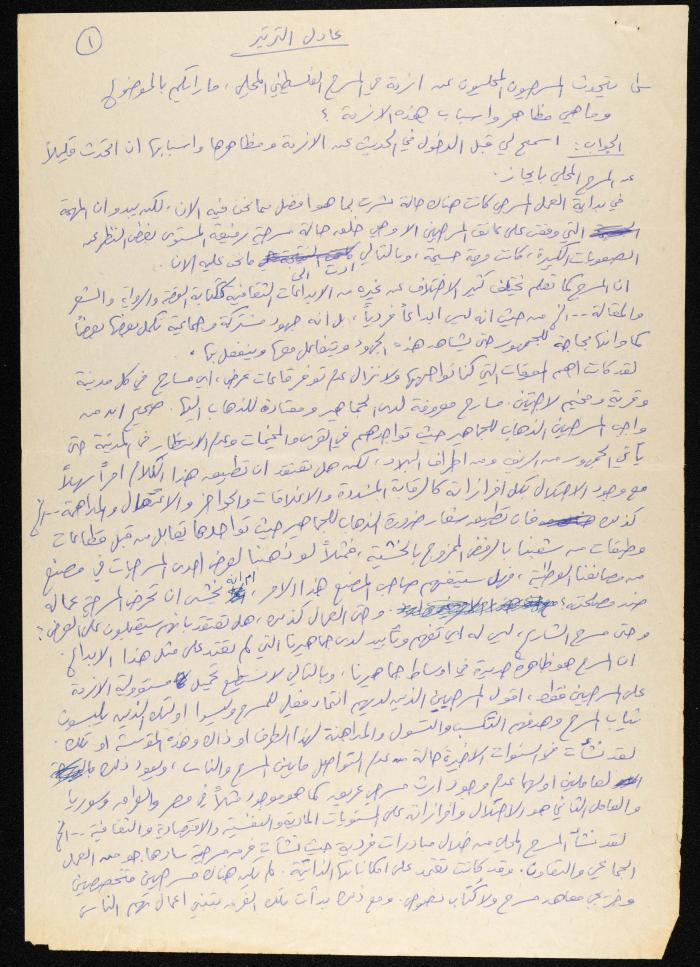 ١
عادل الترتير
س١ يتحدث المسرحيون المحليون عن ازمة في المسرح الفلسطيني المحلي، ما رأيكم بالموضوع
وما هي مظاهر واسباب هذه الازمة ؟
الجواب: اسمح لي قبل الدخول في الحديث عن الازمة ومظاهرها واسبابها ان اتحدث قليلاً
عن المسرح المحلي بايجاز.
في بداية العمل المسرحي كانت هناك حالة بشرت بما هو افضل مما نحن فيه الان، لكن يبدو ان المهمة
التي وقعت على عاتق المسرحيين الاوهي خلق حالة مسرحية رفيعة المستوى بغض النظر عن
الصعوبات الكبيرة، كانت مهمة جسيمة، وبالتالي ادت الى ما نحن عليه الان.
ان المسرح كما تعلم يختلف كثير الاختلاف عن غيره من الابداعات الثقافية ككتابة القصة والرواية والشعر
والمقالة ... الخ من حيث انه ليس ابداعاً فردياً، بل انه جهود مشتركة وجماعية تكمل بعضها بعضاً
كما وانها بحاجة للجمهور حتى يشاهد هذه الجهود ويتفاعل معها وينفعل بها.
لقد كانت اهم المعوقات التي كنا نواجهها ولا نزال عدم توفر قاعات عرض، اي مسارح في كل مدينة
وقرية ومخيم لاجئين. مسارح معروفة لدى الجماهير ومعتادة للذهاب اليها. صحيح انه من
واجب المسرحيين الذهاب للجماهير حيث تواجدهم في القرى والمخيمات وعدم الانتظار في المدينة حتى
يأتي الجمهور من الريف ومن اطراف البلاد، لكن هل تعتقد ان تطبيق هذا الكلام امراً سهلاً
مع وجود الاحتلال بكل افرازاته كالرقابة المشددة والاغلاقات والحواجز والاعتقال والمداهمة ... الخ
كذلك فان تطبيق شعار ضرورة الذهاب للجماهير حيث تواجدها تقابل من قبل قطاعات
وطبقات من شعبنا بالرفض الممزوج بالخشية، فمثلاً لو ذهبنا لعرض احدى المسرحيات في مصنع
من مصانعنا الوطنية، فهل سيتفهم صاحب المصنع هذا الامر، ام انه يخشى ان تحرض المسرحية عماله
ضد مصلحته؟ وحتى العمال كذلك، هل تعتقد بانهم سيقبلون على العرض؟
وحتى مسرح الشارع، ليس له اي تفهم وتأييد لدى جماهيرنا التي لم تعتد على مثل هذا الابداع.
ان المسرح هو ظاهرة جديدة في اوساط جماهيرنا، وبالتالي لا نستطيع تحميل مسؤولية الازمة
على المسرحيين فقط، اقول المسرحيين الذين لديهم انتماء فعلي للمسرح وليسوا اولئك الذين يلبسون
ثياب المسرح وهدفهم التكسب والتسول والمداهنة لهذا الطرف او ذاك وهذه المؤسسة او تلك.
لقد نشأت في السنوات الاخيرة حالة من عدم التواصل ما بين المسرح والناس، ويعود ذلك
لعاملين اولهما عدم وجود ارث مسرحي عريق كما هو موجود مثلاً في مصر والعراق وسوريا
والعامل الثاني هو الاحتلال وافرازاته على المستويات المادية والنفسية والاقتصادية والثقافية ... الخ
لقد نشأ المسرح المحلي من خلال مبادرات فردية حيث نشأت فرق مسرحية سادها جو من العمل
الجماعي والتعاون. وقد كانت تعتمد على امكاناتها الذاتية. لم يكن هناك مسرحيين متخصصين
وخريجي معاهد مسرح ولا كتّاب نصوص. ومع ذلك بدأت تلك الفرق بتبني اعمال تهم الناس